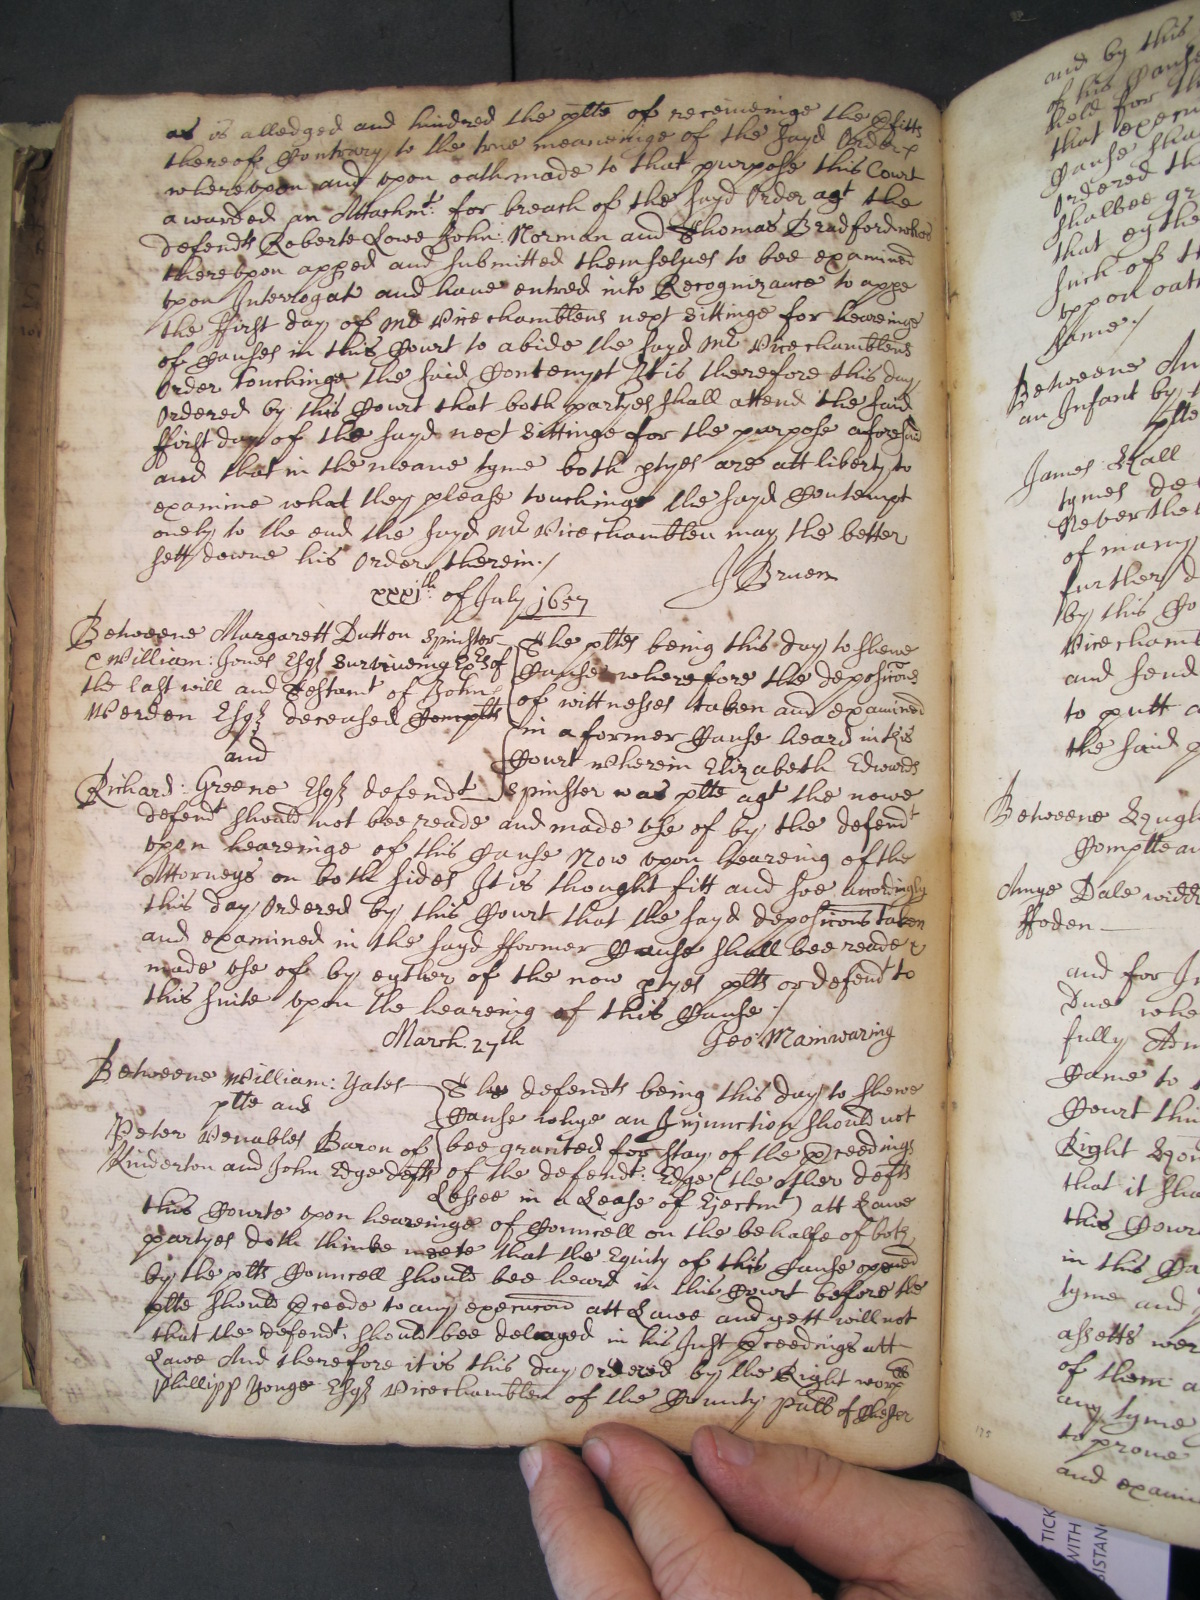 as is alledged and hindred the plte of receiveinge the pfitts
thereof Contrary to the true meaneinge of the sayd Order
whereupon and upon oath made to that purpose this Court
awarded an Attachmt: for breach of the sayd Order agt the
defendts Roberte Lowe John: Norman and Thomas Bradford whoe
thereupon apped and submitted themselves to bee examined
upon Interrogat and have entred into Recognizance to appe
the ffirst day of Mr Vicechamblens next Sittinge for heareinge
of Causes in this Court to abide the sayd Mr Vicechamblens
Order touchinge the said Contempt It is therefore this day
Ordered by this Court that both partyes shall attend the said
ffirst day of the sayd next Sittinge for the purpose aforesaid
and that in the meane tyme both ptyes are att liberty to
examine what they please touchinge the sayd Contempt
onely to the end the sayd Mr Vicechamblen may the better
sett downe his Order therein./
J Bruen
xxxjth: of July 1657
Betweene Margarett Dutton Spinster
& William: Jones Esqr Surviveing Exrs of
the last will and Testamt of John
Werden Esqr deceased Complts
and
Richard: Greene Esqr defendt
The pltes being this day to shewe
Cause wherefore the deposicons
of wittnesses taken and examined
in a former Cause heard in this
Court wherein Elizabeth Edwards
Spinster was plte agt the nowe
defendt should not bee reade and made use of by the defendt
upon heareinge of this Cause Now upon heareing of the
Attorneys on both sides It is thought fitt and soe accordingly
this day Ordered by this Court that the sayd deposicons taken
and examined in the sayd fformer Cause shall bee reade &
made use of by eyther of the now ptyes plts or defendt to
this suite upon the heareing of this Cause
Geo: Mainwaring
March: 27th
Betweene William: Yates
plte and
Peter Venables Baron of
Kinderton and John Edge defts
The defendts being this day to shewe
Cause whye an Injunction should not
bee granted for stay of the pceedings
of the defendt: Edge (the other defts
Lessee in a Lease of Ejectmt) att Lawe
this Courte upon heareinge of Councell on the behalfe of both
partyes doth thinke meete that the Equity of this Cause opened
by the plts Councell should bee heard in this Court before the
plte should pceede to any execucon att Lawe and yett will not
that the defendt: should bee delayed in his Just pceedings att
Lawe And therefore it is this day Ordered by the Right worpll
Phillipp Yonge Esqr Vicechamblen of the County Pall of Chester
and by this
of his Cause
held for th
that execu
Cause shal
Ordered th
shalbee gr
that eythe
such of th
upon oath
same./
Betweene An
an Infant by
plte
James Hall
tymes de
Neverthel
of many
further d
by this Co
Vicechamb
and send
to putt
the said p
Betweene Hugh
Complte an
Amye Dale widd
ffoden
and for
Due whe
fully
Came to
Court this
Right Hon
that it sha
this Cour
in this Ca
tyme and
assetts wer
of them a
any tyme
to prove
and examin
175
TICK
WITH
DISTANC